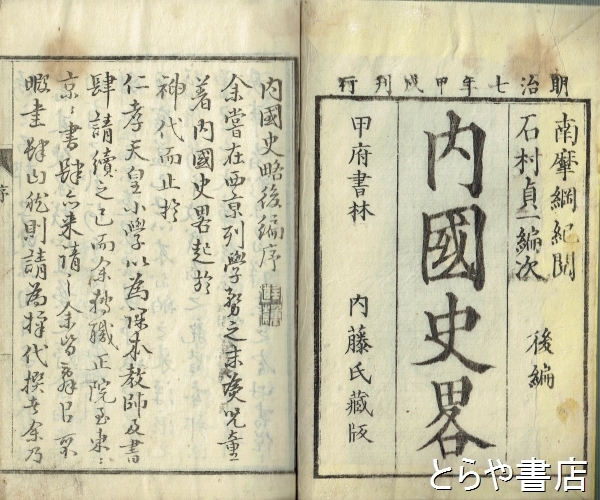 明治七年甲戌刋行
南摩綱紀閲
石村貞一編次
後編
内國史畧
甲府書林
内藤氏藏版
内國史略後編序
余嘗在西京列學務之末為児童
著内國史畧起於
神代而止於
仁孝天皇小學以為課本教師及書
肆請續之已而余轉職正院至東
京書肆亦來請余皆辭以不
暇書肆山然則請為擇代撰者余乃
序
とらや書店